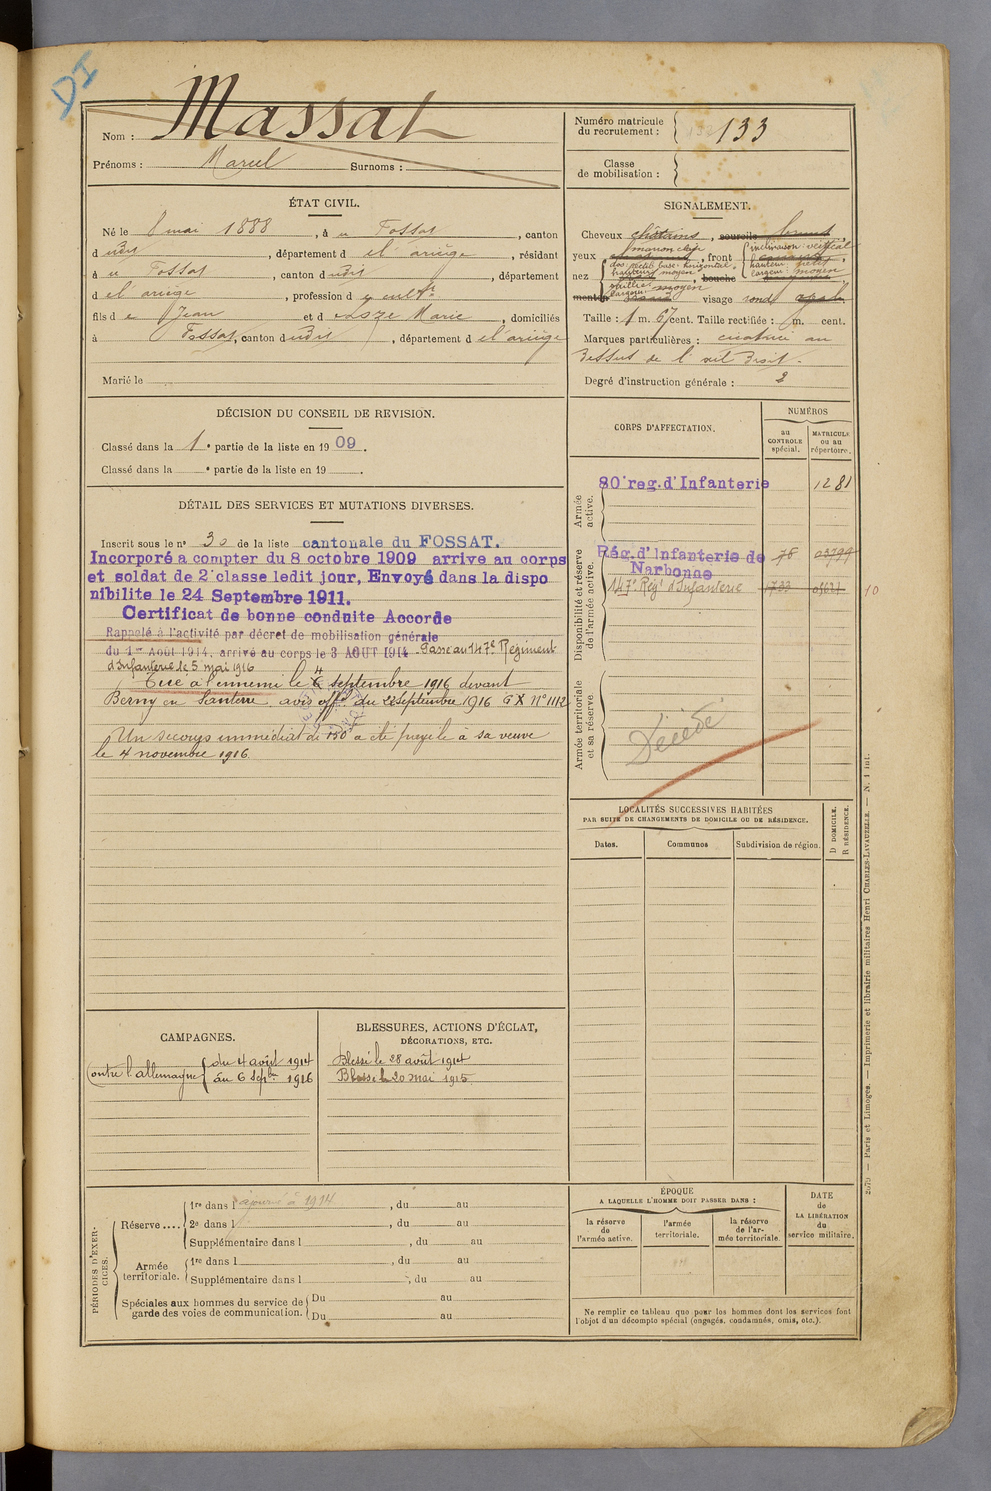 DI
Nom : Massat
Prénoms : Marcel Surnoms :
Numéro matricule du recrutement : 133
Classe de mobilisation :
ÉTAT CIVIL.
Né le 8 mai 1888, à u Fossat, canton
d udit, département d el ariège, résidant
à u Fossat, canton d udit, département
d el ariège, profession d
fils d e Jean et d Marie, domiciliés
à Fossat, canton dudit, département d el'ariège
Marié le
SIGNALEMENT.
Cheveux châtains, sourcils
marron clair inclinaison vertical
yeux , front
dos petit base horizontal hauteur
nez hauteur moyen , bouche largeur moyen
saillie moyen
largeur
menton visage rond
Taille : 1 m. 67 cent. Taille rectifiée : m. cent.
Marques particulières : cicatrice au
dessus de l'œil droit.
Degré d'instruction générale : 2
DÉCISION DU CONSEIL DE REVISION.
Classé dans la 1e partie de la liste en 1909.
Classé dans la e partie de la liste en 19
CORPS D'AFFECTATION.
NUMÉROS
au CONTROLE spécial.
MATRICULE ou au répertoire.
Armée active.
80e reg. d'Infanterie 1281
Disponibilité et réserve de l'armée active.
Rég. d'Infanterie de 78
Narbonne
147e Régt d'Infanterie 1733
10
Armée territoriale et sa réserve.
Décédé
DÉTAIL DES SERVICES ET MUTATIONS DIVERSES.
Inscrit sous le n° 30 de la liste cantonale du FOSSAT.
Incorporé a compter du 8 octobre 1909 arrive au corps
et soldat de 2e classe ledit jour, Envoyé dans la dispo
nibilite le 24 Septembre 1911.
Certificat de bonne conduite Accorde
Rappelé à l'activité par décret de mobilisation générale
du 1er Août 1914, arrivé au corps le 3 AOUT 1914. Passé au 147e Régiment
d'Infanterie le 5 mai 1916
Tué à l'ennemi le 4 septembre 1916 devant
Berny en Santerre, avis offel du 22 septembre 1916 GX N° 1112
Un secours immédiat de 150f a été payé le à sa veuve
le 4 novembre 1916.
LOCALITÉS SUCCESSIVES HABITÉES
PAR SUITE DE CHANGEMENTS DE DOMICILE OU DE RÉSIDENCE.
Dates. Communes Subdivision de région. D DOMICILE. R RÉSIDENCE.
CAMPAGNES.
Contre l'allemagne du 4 août 1914
au 6 septbre 1916
BLESSURES, ACTIONS D'ÉCLAT,
DÉCORATIONS, ETC.
Blessé le 28 août 1914
Blessé le 20 mai 1915.
PÉRIODES D'EXERCICES.
Réserve .... 1re dans l ajourné à 1914, du au
2e dans l , du au
Supplémentaire dans l , du au
Armée territoriale. 1re dans l , du au
Supplémentaire dans l , du au
Spéciales aux hommes du service de garde des voies de communication. Du au
Du au
ÉPOQUE
A LAQUELLE L'HOMME DOIT PASSER DANS :
la réserve de l'armée active.
l'armée territoriale.
la réserve de l'armée territoriale.
DATE de LA LIBÉRATION du service militaire.
Ne remplir ce tableau que pour les hommes dont les services font
l'objet d'un décompte spécial (engagés, condamnés, omis, etc.).
2079 — Paris et Limoges. — Imprimerie et librairie militaires Henri CHARLES-LAVAUZELLE. — N. 1 int.